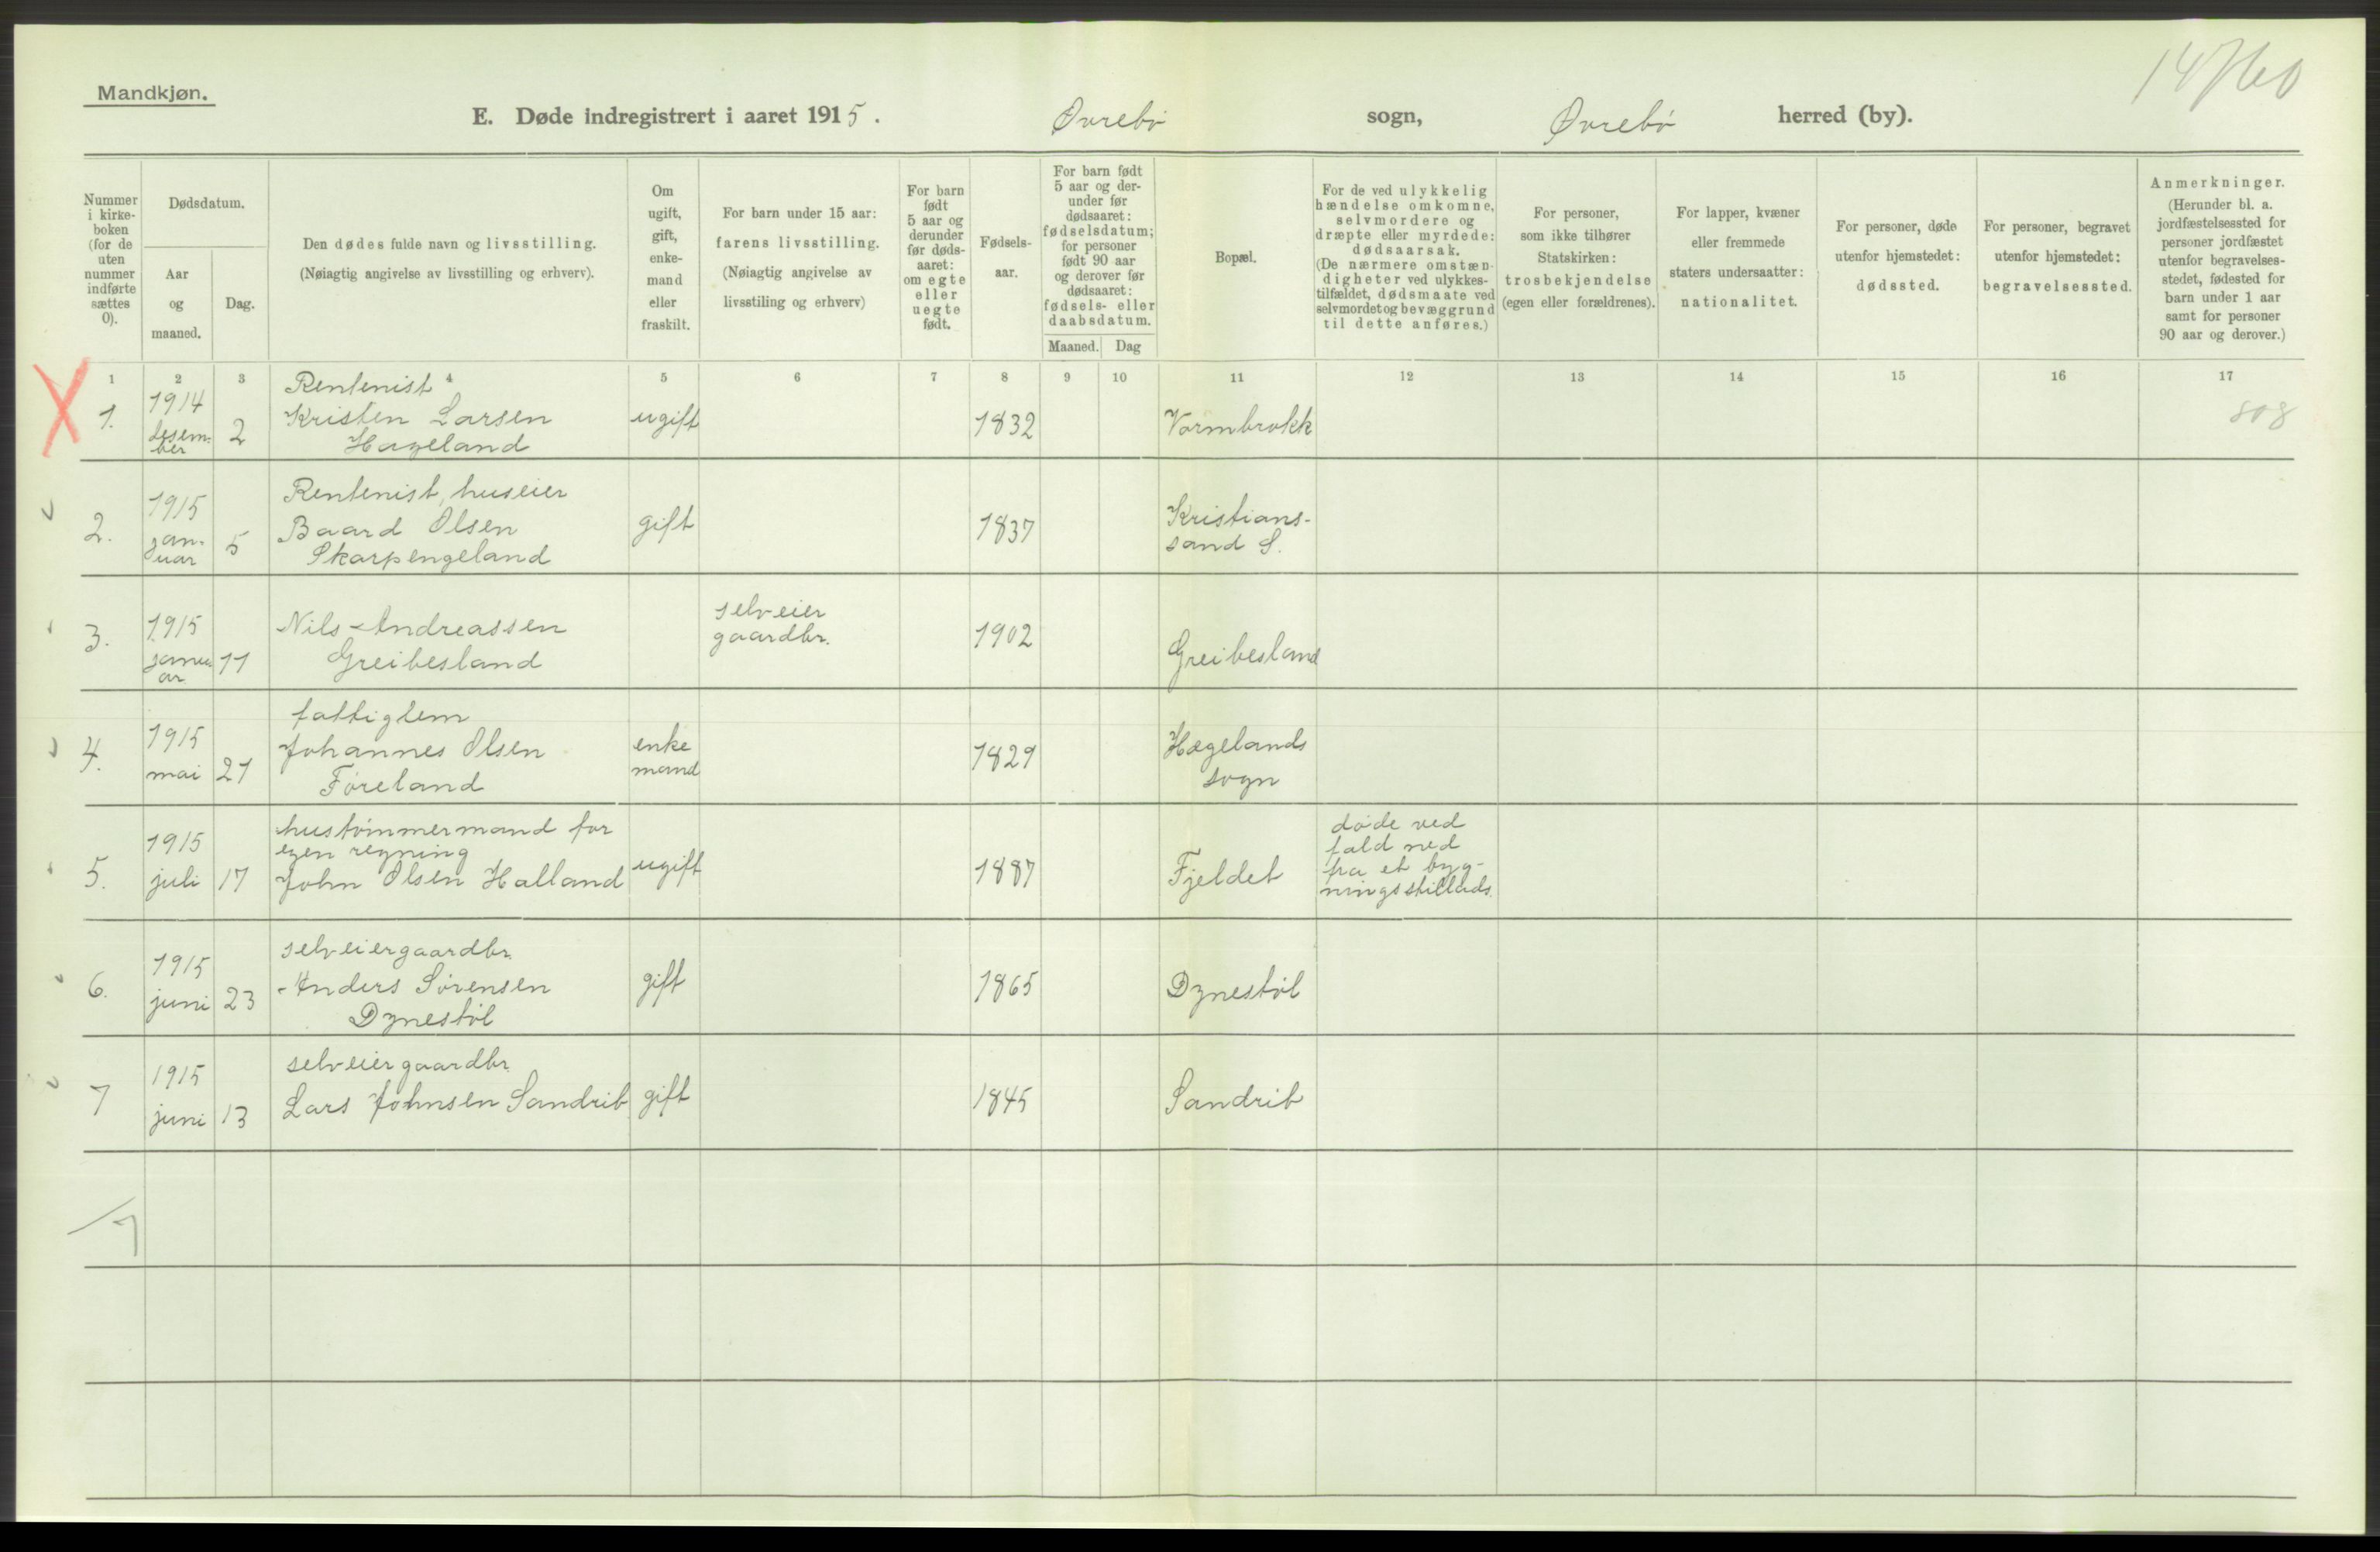 Mandkjøn.
E. Døde indregistrert i aaret 1915. Øvrebø sogn, Øvrebø herred (by).
14/60
Nummer i kirkeboken (for de uten nummer indførte sættes 0).
Dødsdatum.
Aar og maaned.
Dag.
Den dødes fulde navn og livsstilling.
(Nøiagtig angivelse av livsstilling og erhverv).
Om ugift, gift, enkemand eller fraskilt.
For barn under 15 aar:
farens livsstilling.
(Nøiagtig angivelse av
livsstiling og erhverv)
For barn født 5 aar og derunder før dødsaaret: om egte eller uegte født.
Fødselsaar.
For barn født 5 aar og derunder før dødsaaret: fødselsdatum; for personer født 90 aar og derover før dødsaaret: fødsels- eller daabsdatum.
Maaned. Dag
Bopæl.
For de ved ulykkelig hændelse omkomne, selvmordere og dræpte eller myrdede: dødsaarsak.
(De nærmere omstændigheter ved ulykkestilfældet, dødsmaate ved selvmordet og bevæggrund til dette anføres.)
For personer, som ikke tilhører Statskirken: trosbekjendelse (egen eller forældrenes).
For lapper, kvæner eller fremmede staters undersaatter: nationalitet.
For personer, døde utenfor hjemstedet: dødssted.
For personer, begravet utenfor hjemstedet: begravelsessted.
Anmerkninger.
(Herunder bl. a. jordfæstelsessted for personer jordfæstet utenfor begravelsesstedet, fødested for barn under 1 aar samt for personer 90 aar og derover.)
1 2 3 4 5 6 7 8 9 10 11 12 13 14 15 16 17
1. 1914 desember 2 Rentenist Kristen Larsen Hageland ugift 1832 Vormbrokk 808
2. 1915 januar 5 Rentenist, huseier Baard Olsen Skarpengeland gift 1837 Kristianssand S.
3. 1915 januar 11 Nils Andreassen Greibesland selveier gaardbr. 1902 Greibesland
4. 1915 mai 21 fattiglem Johannes Olsen Føreland enkemand 1829 Hægelands sogn
5. 1915 juli 17 hustømmermand for egen regning John Olsen Halland ugift 1887 Fjeldet døde ved fald ned fra et bygningsstillads.
6. 1915 juni 23 selveiergaardbr. Anders Sørensen Dynestøl gift 1865 Dynestøl
7 1915 juni 13 selveiergaardbr. Lars Johnsen Sandrib gift 1845 Sandrib
7